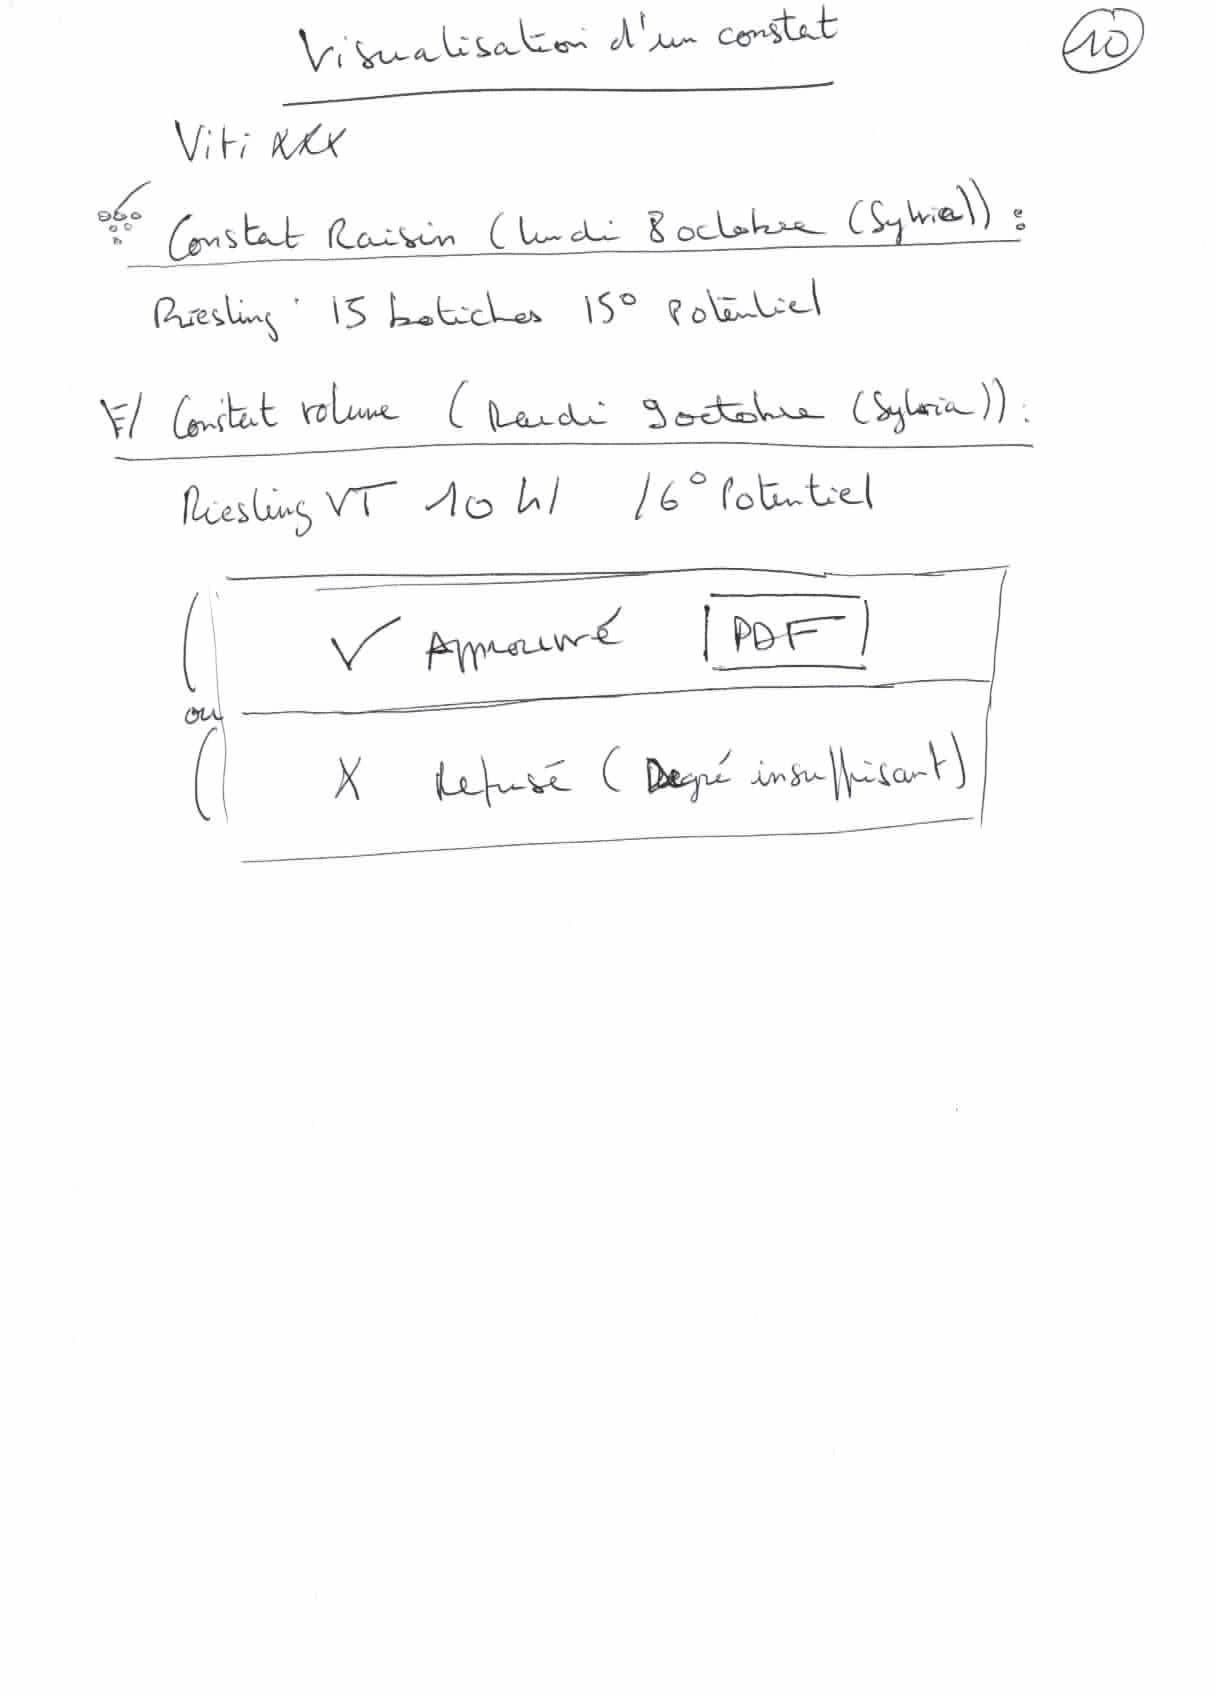 Visualisation d'un constat
10
Viti XXX
Constat Raisin (lundi 8 octobre (Sylvie)) :
Riesling : 15 botiches 15° Potentiel
Constat volume (Mardi 9 octobre (Sylvia)) :
Riesling VT 10 hl 16° Potentiel
✓ Approuvé PDF
ou
X Refusé (Degré insuffisant)